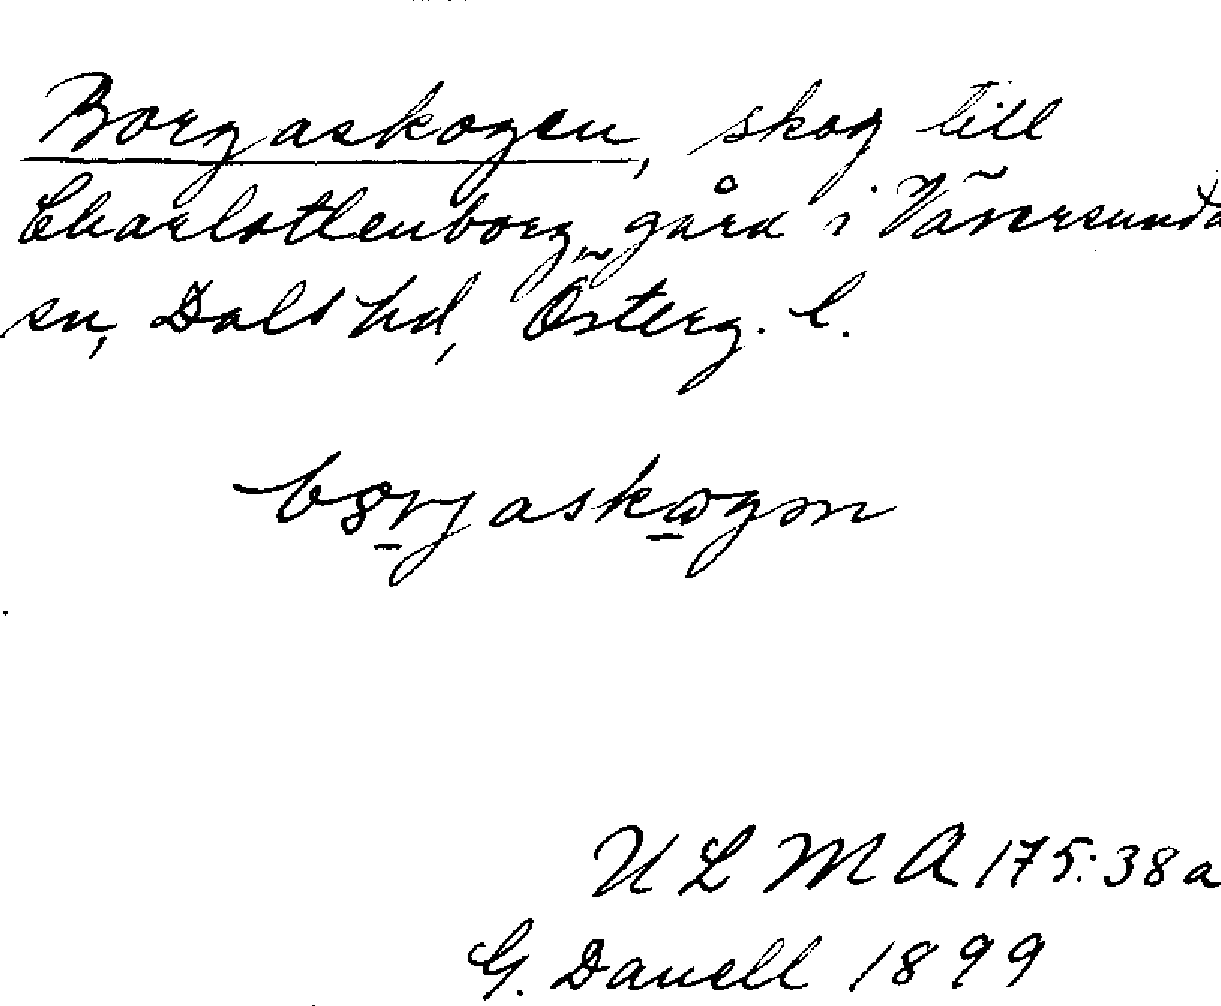 Borgaskogen, skog till
Charlottenborg, gård i Väversunda
sn, Dals hd, Österg. l.
ULMA 175:38a
G. Danell 1899